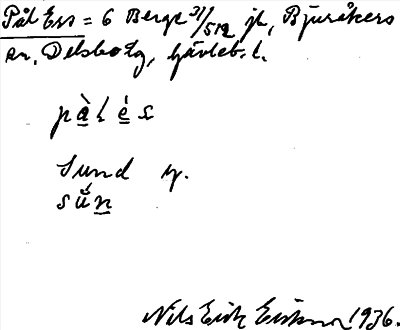 Pål Ers = 6 Berge 31/512 jh, Bjuråkers
sn, Delsbo tg, Gävleb. l.
pàlés
Sund y.
sǘn
Nils Erik Eriksson 1936.